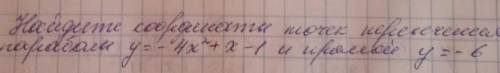 Найдите координаты точек пересечения
параболы y = -4x² + x - 1 и прямой y = -6